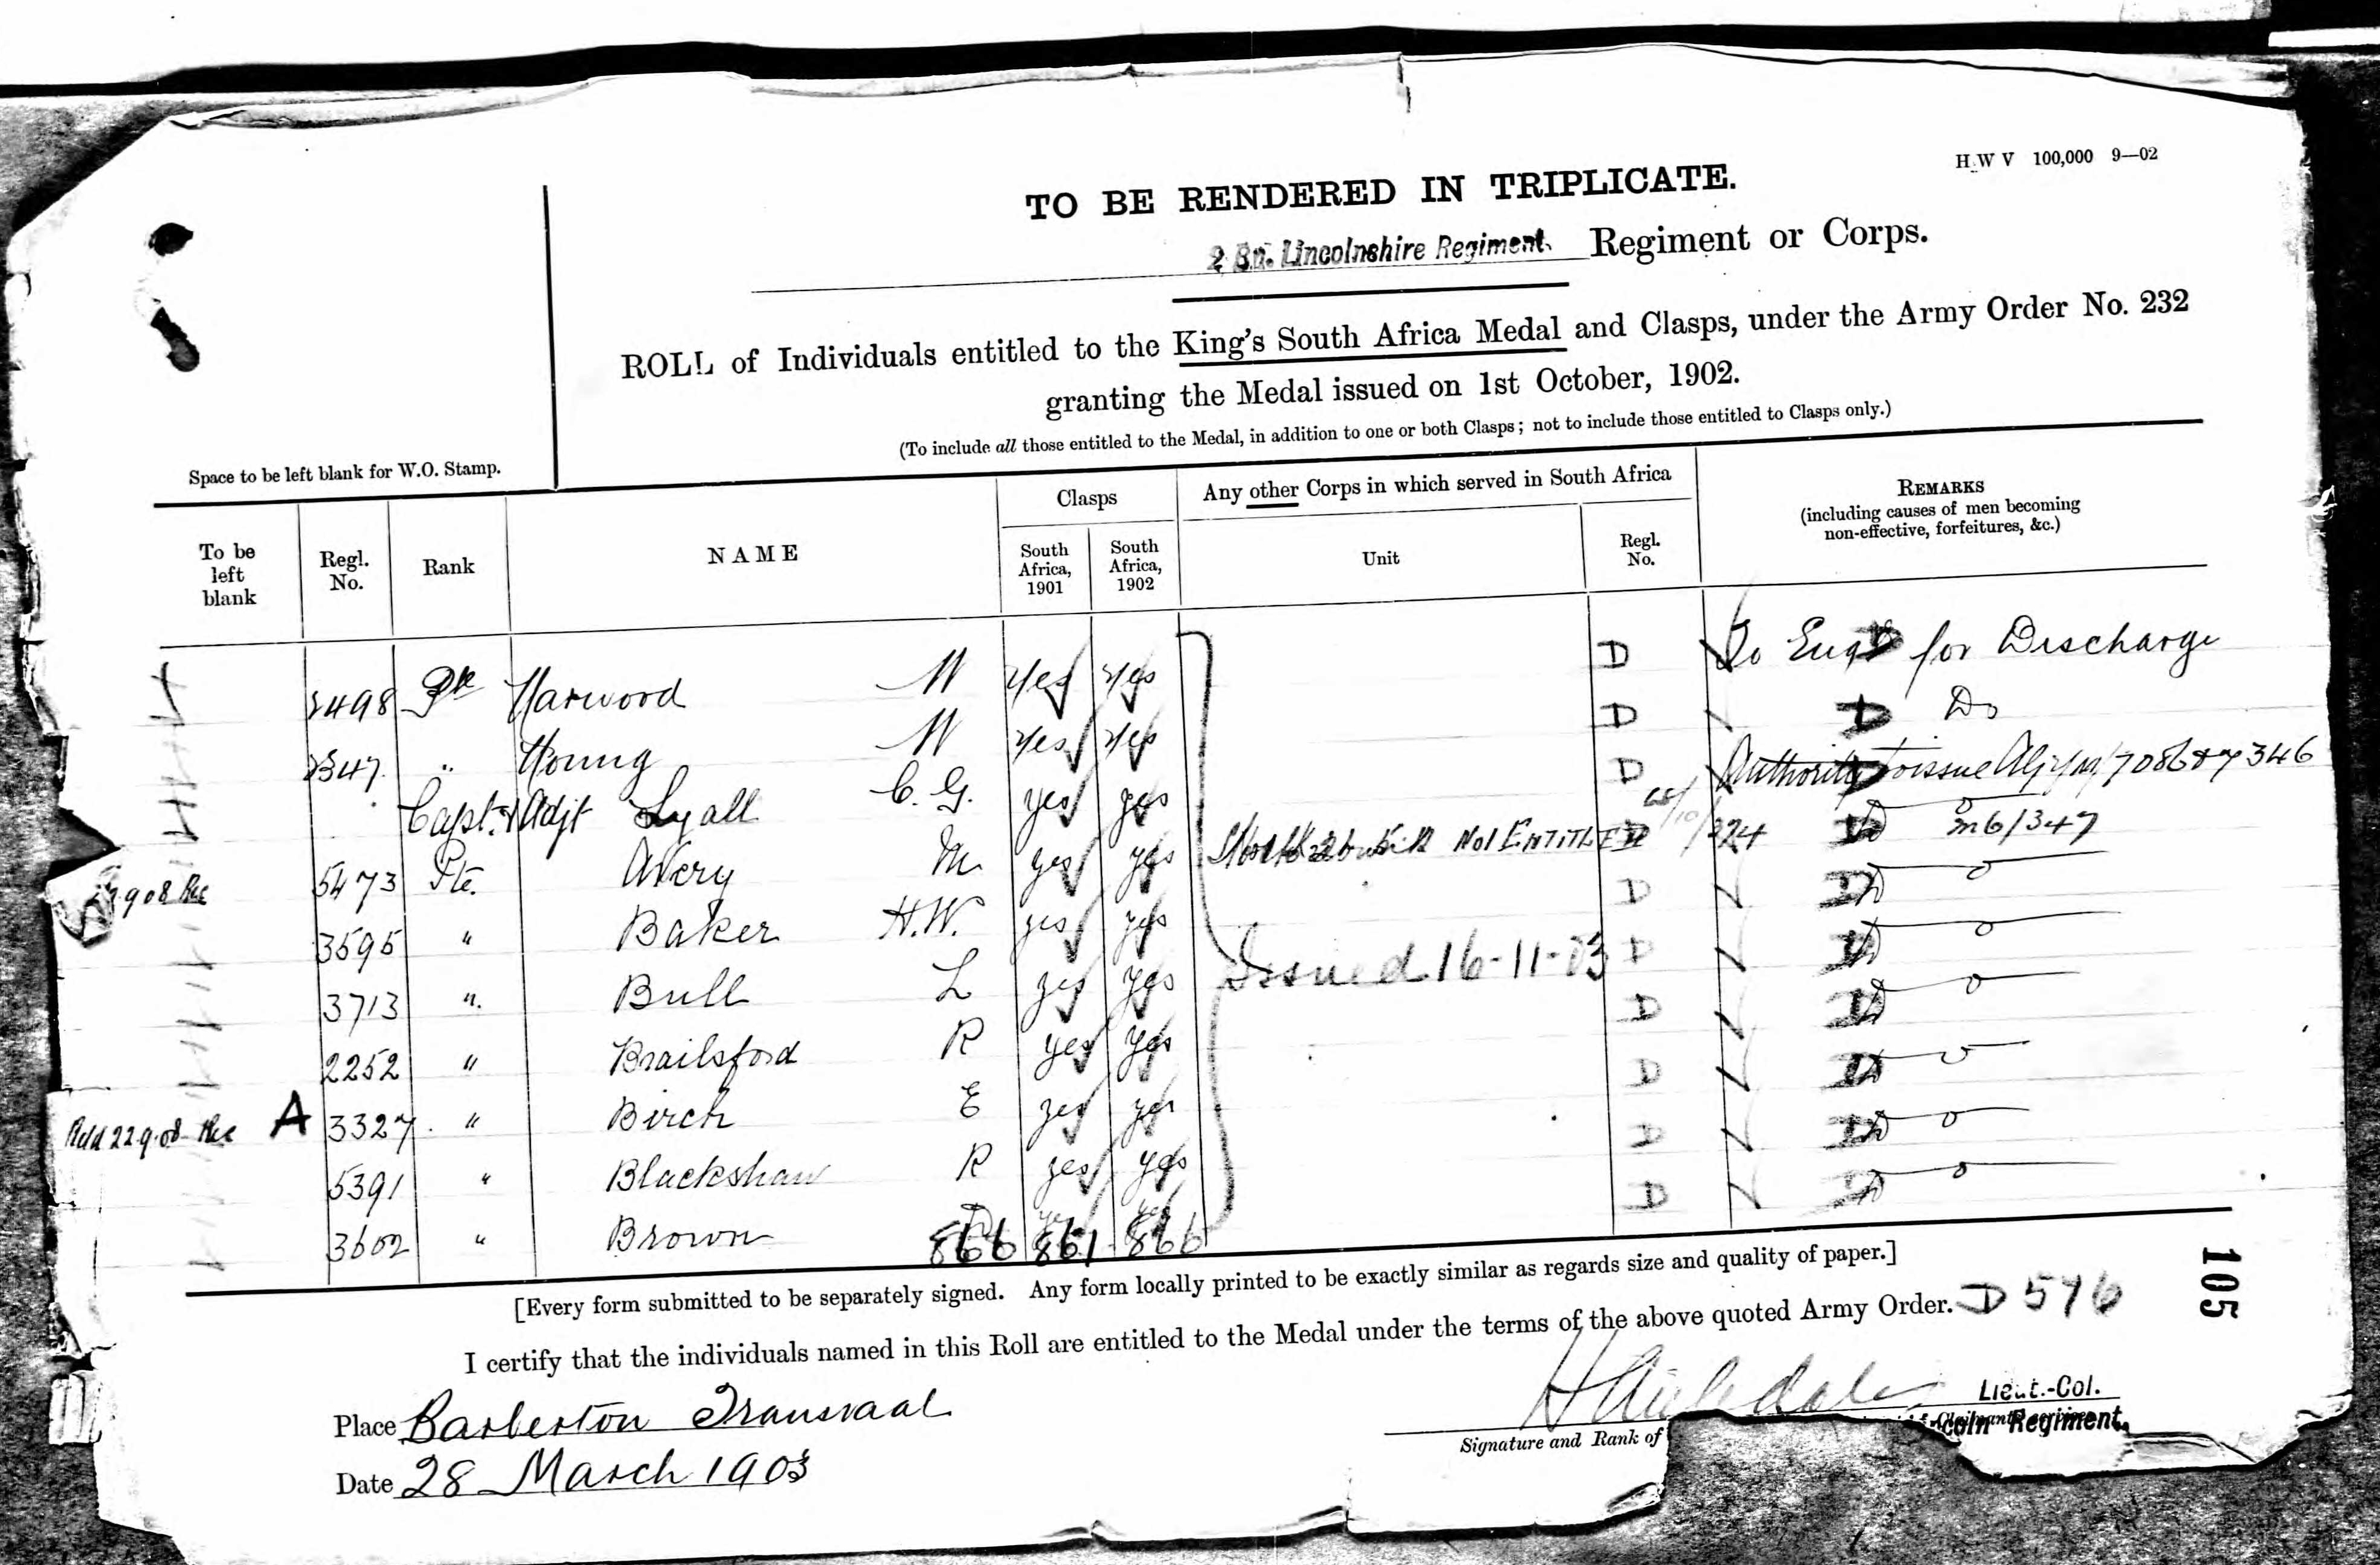 H.W V 100,000 9—02
TO BE RENDERED IN TRIPLICATE.
2 Bn. Lincolnshire Regiment. Regiment or Corps.
ROLL of Individuals entitled to the King's South Africa Medal and Clasps, under the Army Order No. 232
granting the Medal issued on 1st October, 1902.
(To include all those entitled to the Medal, in addition to one or both Clasps; not to include those entitled to Clasps only.)
Space to be left blank for W.O. Stamp.
To be left blank Regl. No. Rank NAME Clasps South Africa, 1901 South Africa, 1902 Any other Corps in which served in South Africa Unit Regl. No. REMARKS (including causes of men becoming non-effective, forfeitures, &c.)
3498 Pte Harwood W Yes Yes D To Engd for Discharge
2347 " Young W Yes Yes D Do
Capt. & Adjt Lyall C. G. yes yes D Authority to issue
5473 Pte. Avery M yes yes NOT ENTITLED 224 D m6/347
3595 " Baker H.W. yes yes D Do
3713 " Bull L yes yes Issued 16-11-03 D Do
2252 " Brailsford R yes yes D Do
Retd 22.9.08 Rec A 3327 " Birch E yes yes D Do
5391 " Blackshaw R yes yes D Do
3602 " Brown D yes yes D Do
866 861 866
[Every form submitted to be separately signed. Any form locally printed to be exactly similar as regards size and quality of paper.]
I certify that the individuals named in this Roll are entitled to the Medal under the terms of the above quoted Army Order. D 576
105
Place Barberton Transvaal
Date 28 March 1903
Lieut.-Col.
Signature and Rank of
coln Regiment.